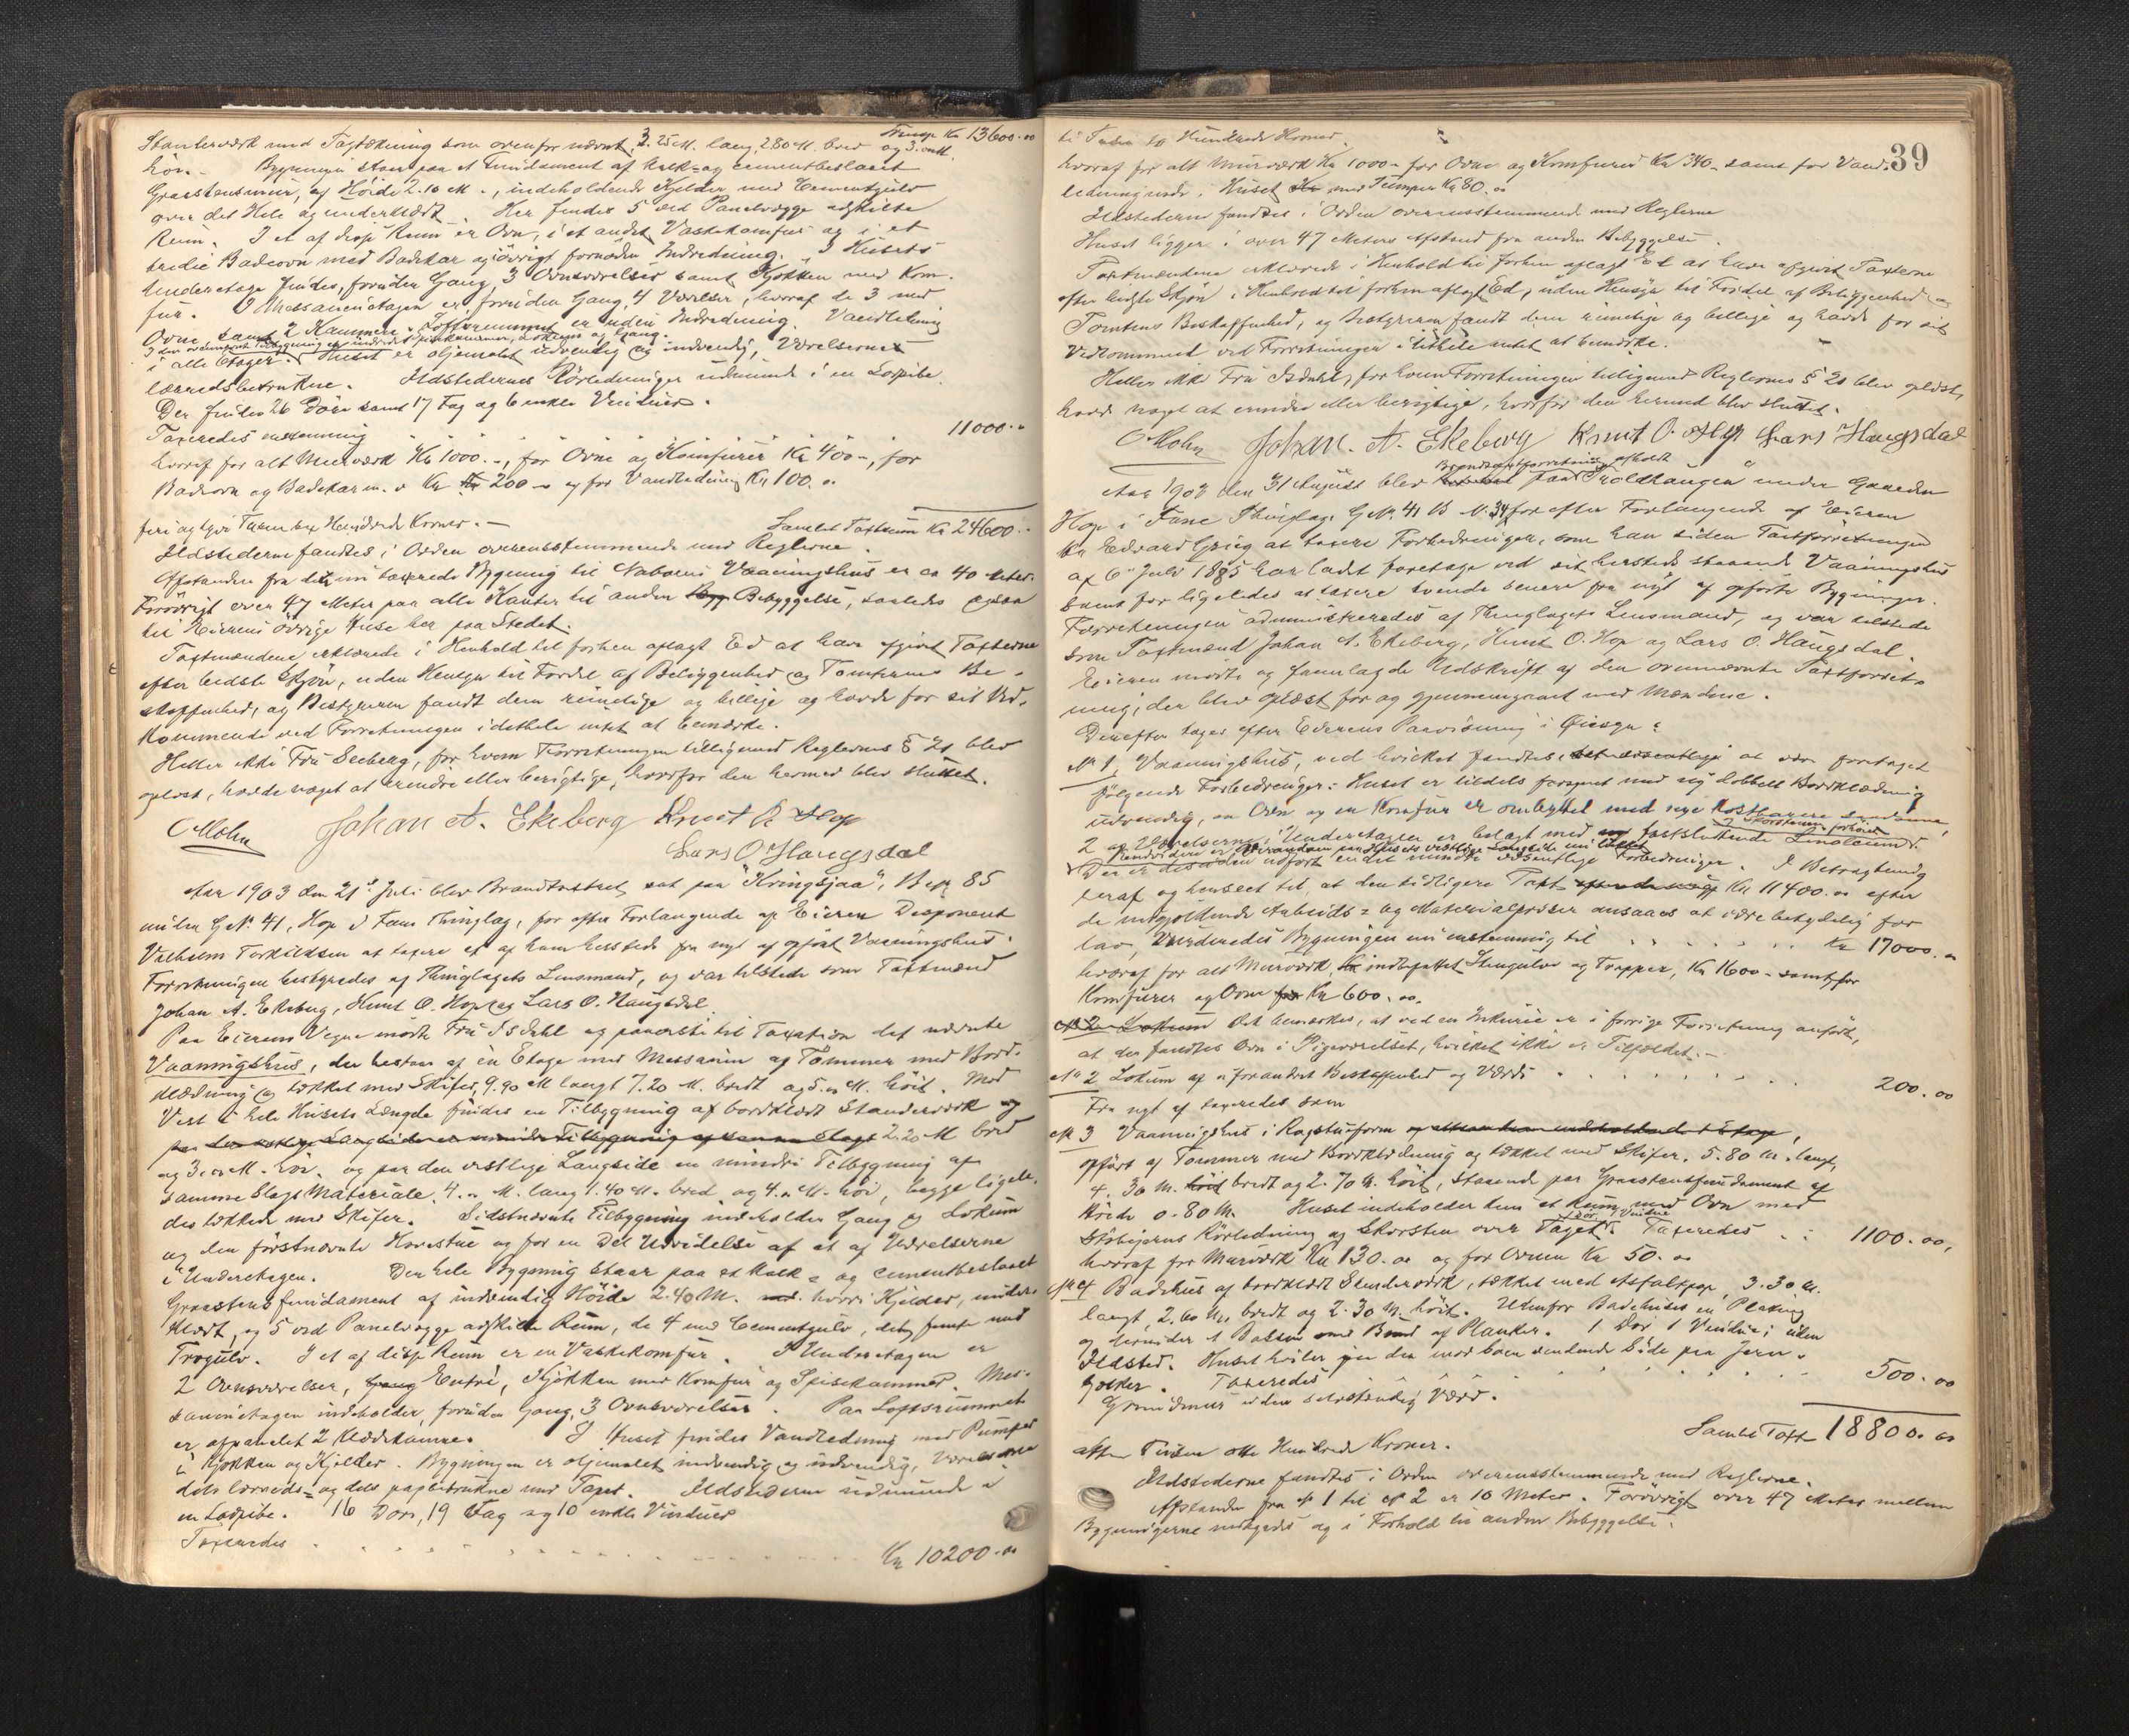 Transp. Kr 13600.00
Standerværk med Tagtækning som ovenfor nævnt, 3.25 M. lang, 2.80 M. bred og 3.00 M.
høi. – Bygningen staar paa et Fundament af kalk- og cementbeslaaet
Graastensmur, af Høide 2.10 M., indeholdende Kjelder med Cementgulv
over det Hele og underklædt. Her findes 5 ved Panelvægge adskilte
Rum. I et af disse Rum er Ovn, i et andet Vaskekomfur og i et
tredie Badeovn med Badekar og øvrigt fornøden Indredning. I Husets
Underetage findes, foruden Gang, 3 Ovnsværelser samt Kjøkken med Kom-
fur. I Messaninetagen er foruden Gang, 4 Værelser, hvoraf de 3 med
Ovne samt 2 Kammere. Loftsrummet er uden Indredning. Vandledning
I den ovennævnte Tilbygning er indredet Spisekammer, Lokum og Gang.
i alle Etager. Huset er oljemalet udvendig og indvendig, Værelserne
lærredsbetrukne. Ildstedernes Rørledninger udmunde i en Ladpibe.
Der findes 26 Døre samt 17 Fag og 6 enkle Vinduer.
Taxeredes enstemmig 11000.00
hvoraf for alt Murværk Kr 1000.–, for Ovne og Komfurer Kr 400–, for
Badeovn og Badekar m.v Kr 200– og for Vandledning Kr 100.00
Samlet Taxtsum Kr 24600.–
firi og tyve Tusen sex Hundrede Kroner. –
Ildstederne fandtes i Orden overensstemmende med Reglerne.
Afstanden fra den nu taxerede Bygning til Naboens Vaaningshus er ca 40 Meter.
Forøvrigt over 47 Meter paa alle Kanter til anden Bebyggelse, saaledes ogsaa
til Eierens øvrige Huse her paa Stedet.
Taxtmændene erklærede i Henhold til forhen aflagt Ed at have afgivet Taxterne
efter bedste Skjøn, uden Hensyn til Fordel af Beliggenhed og Tomternes Be-
skaffenhed, og Bestyreren fandt dem rimelige og billige og havde for sit Ved-
kommende ved Forretningen idethele intet at bemærke.
Heller ikke Fru Seeberg, for hvem Forretningen tilligemed Reglernes § 20 blev
oplæst, havde noget at erindre eller berigtige, hvorfor den hermed blev sluttet.
O Mohn Johan A. Ekeberg Knut O. Hop
Lars O Haugsdal
Aar 1903 den 21de Juli blev Brandtaxtret sat paa "Kringsjaa", B.No. 85
under G.No. 41, Hop i Fane Thinglag, for efter Forlangende af Eieren Disponent
Vilhelm Torkildsen at taxere et af ham hersteds fra nyt af opført Vaaningshus.
Forretningen bestyredes af Thinglagets Lensmand, og var tilstede som Taxtmænd
Johan A. Ekeberg, Knut O. Hop og Lars O. Haugsdal.
Paa Eierens Vegne mødte Fru Isdahl og paaviste til Taxation det nævnte
Vaaningshus, der bestaar af en Etage med Messanin og Tømmer med Bord-
klædning og tækket med Skifer, 9.90 M langt 7.20 M. bredt og 5.00 M. høit. Mod
Vest i hele Husets Længde findes en Tilbygning af bordklædt Standerværk og
paa den østlige Langside en mindre Tilbygning af samme Slags 2.20 M bred
og 3.00 M. høi, og paa den østlige Langside en mindre Tilbygning af
samme Slags Materiale, 4.00 M. lang 1.40 M. bred og 4.00 M. høi, begge ligele-
des tækkede med Skifer. Sidstnævnte Tilbygning indeholder Gang og Lokum
og den førstnævnte Havestue og for en Del Udvidelse af et af Værelserne
i Underetagen. Den hele Bygning staar paa et kalk- og cementbeslaaet
Graastensfundament af indvendig Høide 2.40 M. hvori Kjelder, under-
klædt, og 5 ved Panelvægge adskilte Rum, de 4 med Cementgulv, det femte med
Trægulv. I et af disse Rum er en Vaskekomfur. I Underetagen er
2 Ovnsværelser, Entré, Kjøkken med Komfur og Spisekammer. Mes-
sanineetagen indeholder, foruden Gang, 3 Ovnsværelser. Paa Loftsrummet
er afpanelet 2 Klædekamre. I Huset findes Vandledning med Pumper
i Kjøkken og Kjelder. Bygningen er oljemalet indvendig og udvendig, Værelserne
dels lærreds- og dels papbetrukne med Tapet. Ildstederne udmunde i
en Ladpibe. 16 Døre, 19 Fag og 10 enkle Vinduer
Taxeredes Kr 10200.00
39
ti Tusen to Hundrede Kroner
hvoraf for alt Murværk Kr 1000– for Ovne og Komfurer Kr 340– samt for Vand-
ledning inde i Huset med Pumper Kr 80.00
Ildstederne fandtes i Orden overensstemmende med Reglerne
Huset ligger i over 47 Meters Afstand fra anden Bebyggelse.
Taxtmændene erklærede i Henhold til forhen aflagt Ed at have afgivet Taxterne
efter bedste Skjøn i Henhold til forhen aflagt Ed, uden Hensyn til Fordel af Beliggenhed og
Tomtens Beskaffenhed, og Bestyreren fandt dem rimelige og billige og havde for sit
Vedkommende ved Forretningen idethele intet at bemærke.
Heller ikke Fru Isdahl, for hvem Forretningen tilligemed Reglernes § 20 blev oplæst,
havde noget at erindre eller berigtige, hvorfor den hermed blev sluttet.
O Mohn Johan. A. Ekeberg Knut O. Hop Lars Haugsdal
Brandtaxtforretning afholdt
Aar 1903 den 31 August blev paa "Troldhaugen" under Gaarden
Hop i Fane Thinglag, G.No. 41 B.No. 34 for efter Forlangende af Eieren
Hr Edvard Grieg at taxere Forbedringer, som han siden Taxtforretningen
af 6te Juli 1885 har ladet foretage ved sit hersteds staaende Vaaningshus
samt for ligeledes at taxere tvende senere fra nyt af opførte Bygninger.
Forretningen administreredes af Thinglagets Lensmand, og var tilstede
som Taxtmænd Johan A. Ekeberg, Knut O. Hop og Lars O. Haugsdal.
Eieren mødte og fremlagde Udskrift af den ovennævnte Taxtforret-
ning, der blev oplæst for og gjennemgaaet med Mændene.
Derefter toges efter Eierens Paavisning i Øiesyn:
No 1, Vaaningshus, ved hvilket fandtes at være foretaget
følgende Forbedringer: Huset er tildels forsynet med ny dobbelt Bordklædning
udvendig, en Ovn og en Komfur er ombyttet med nye kostbarere saadanne,
I Skorstenen forhøiet
2 af Værelserne i Underetagen er belagt med fastsluttende Linoleum.
Der er desuden udført endel mindre væsentlige Forbedringer. I Betragtning
heraf og henseet til, at den tidligere Taxt Kr 11400.00 efter
de nugjældende Arbeids- og Materialpriser ansaaes at være betydelig for
lav, vurderedes Bygningen nu enstemmig til Kr 17000.00
hvoraf for alt Murværk, indbefattet Stengulve og Trapper, Kr 1600– samt for
Komfurer og Ovne Kr 600.00.
No 2 Lokum Det bemærkes, at ved en Inkurie er i forrige Forretning anført,
at der fandtes Ovn i Pigeværelset, hvilket ikke er Tilfældet. –
No 2 Lokum af uforandret Beskaffenhed og Værdi 200.00
Fra nyt af taxeredes som
No 3 Vaaningshus i Røgstueform
opført af Tømmer med Bordklædning og tækket med Skifer, 5.80 M. langt,
4.30 M. bredt og 2.70 M. høit, staaende paa Graastensfundament af
Høide 0.80 M. Huset indeholder kun et Rum med Ovn med
1 Dør, Vindue
Støbejerns Rørledning og Skorsten over Taget. Taxeredes 1100.00,
hvoraf for Murværk Kr 130.00 og for Ovnen Kr 50.00
No 4 Badehus af bordklædt Standerværk, tækket med Asfaltpap, 3.30 M.
langt, 2.60 M. bredt og 2.30 M. høit. Udenfor Badehuset en Plating
og herunder et Bassin med Bund af Planker. 1 Dør 1 Vindue; uden
Ildsted. Huset hviler paa den mod Søen vendende Side paa Jern-
bjelker. Taxeredes 500.00
Grundmur uden selvstændig Værd.
Samlet Taxt 18800.00
atten Tusen otte Hundrede Kroner.
Ildstederne fandtes i Orden overensstemmende med Reglerne.
Afstanden fra No 1 til No 2 er 10 Meter. Forøvrigt over 47 Meter mellem
Bygningerne indbyrdes og i Forhold til anden Bebyggelse.